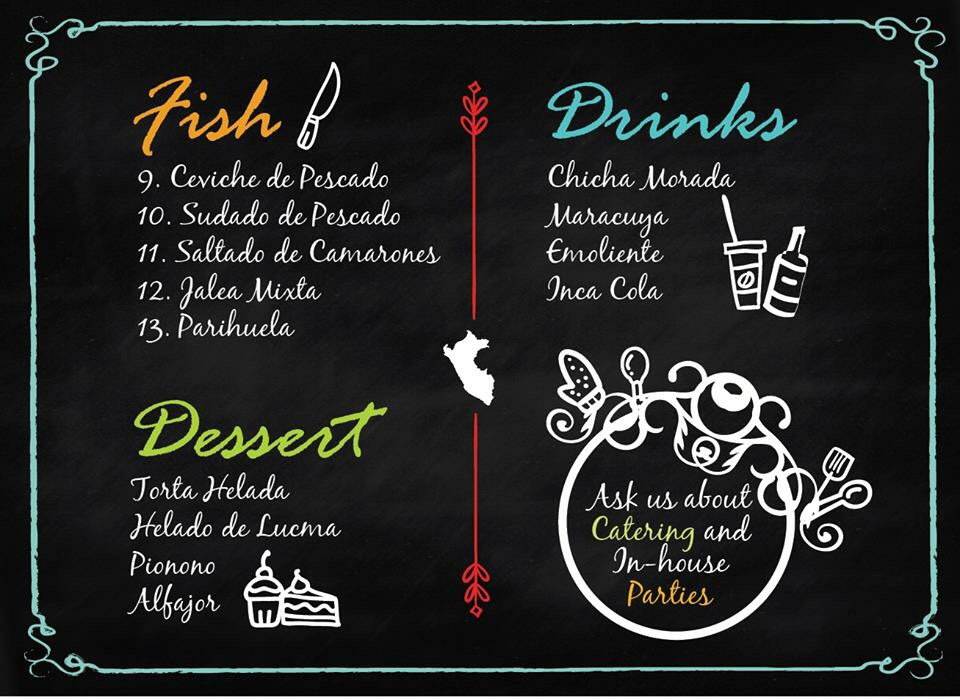 Fish
9. Ceviche de Pescado
10. Sudado de Pescado
11. Saltado de Camarones
12. Jalea Mixta
13. Parihuela
Dessert
Torta Helada
Helado de Lucma
Pionono
Alfajor
Drinks
Chicha Morada
Maracuya
Emoliente
Inca Cola
Ask us about
Catering and
In-house
Parties